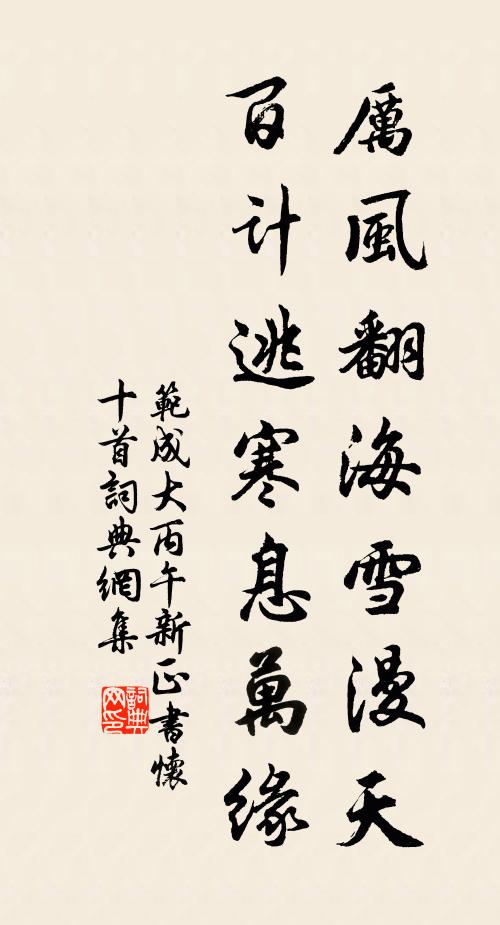 厲風翻海雪漫天
百计逃寒息萬緣
範成大丙午新正書懷
十首詞典網集
詞典網印